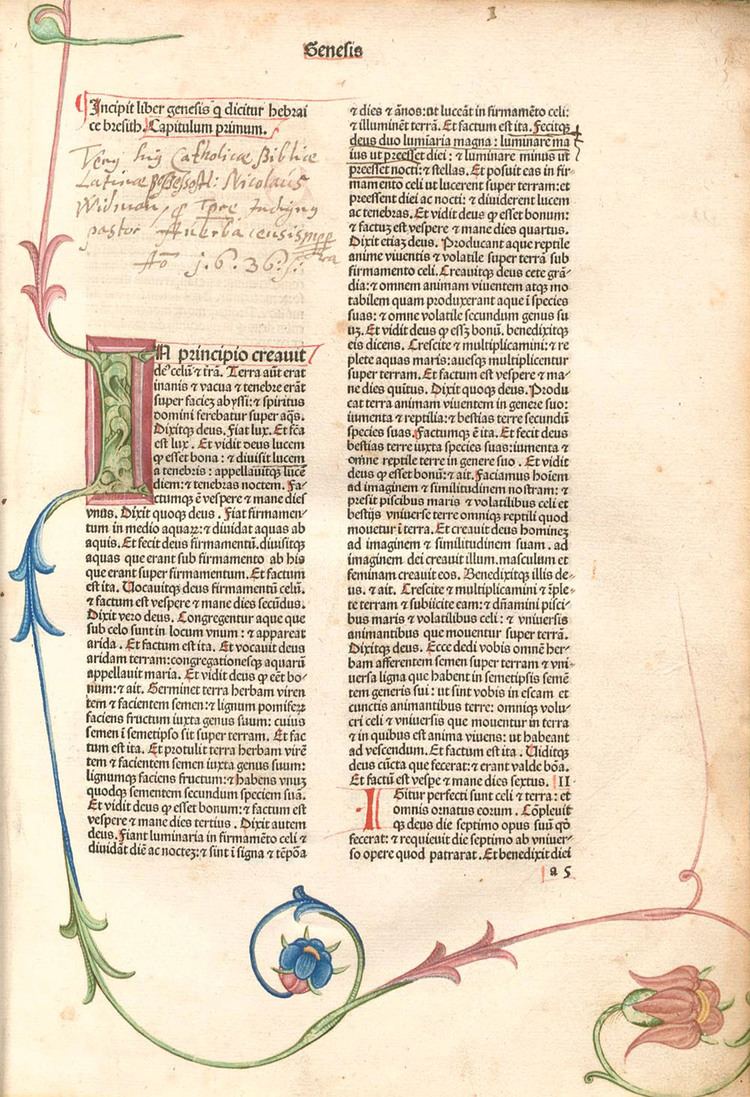 1
Genesis
Incipit liber genesis ꝗ dicitur hebrai
ce bresith. Capitulum primum.
Catholicæ Bibliæ
Latinæ Nicolaus
Widman
pastor Auerbacensis
Aō 1.6.36.
IN principio creauit
de᷒ celū ⁊ trā. Terra aūt erat
inanis ⁊ vacua ⁊ tenebre erāt
super faciez abyssi: ⁊ spiritus
domini ferebatur super aq̄s.
Dixitqꝫ deus. Fiat lux. Et fc̄a
est lux. Et vidit deus lucem
ꝙ esset bona: ⁊ diuisit lucem
a tenebris: appellauitqꝫ lucē
diem: ⁊ tenebras noctem. Fa-
ctumqꝫ ē vespere ⁊ mane dies
vnus. Dixit quoqꝫ deus. Fiat firmamen-
tum in medio aquaꝝ: ⁊ diuidat aquas ab
aquis. Et fecit deus firmamentū. diuisitqꝫ
aquas que erant sub firmamento ab his
que erant super firmamentum. Et factum
est ita. Uocauitqꝫ deus firmamentū celū.
⁊ factum est vespere ⁊ mane dies secūdus.
Dixit vero deus. Congregentur aque que
sub celo sunt in locum vnum: ⁊ appareat
arida. Et factum est ita. Et vocauit deus
aridam terram: congregationesqꝫ aquarū
appellauit maria. Et vidit deus ꝙ eēt bo-
num: ⁊ ait. Germinet terra herbam viren
tem ⁊ facientem semen: ⁊ lignum pomiferꝝ
faciens fructum iuxta genus suum: cuius
semen ī semetipso sit super terram. Et fac
tum est ita. Et protulit terra herbam virē
tem ⁊ facientem semen iuxta genus suum:
lignumqꝫ faciens fructum: ⁊ habens vnuz
quodqꝫ sementem secundum speciem suā.
Et vidit deus ꝙ esset bonum: ⁊ factum est
vespere ⁊ mane dies tertius. Dixit autem
deus. Fiant luminaria in firmamēto celi ⁊
diuidāt diē ac noctez: ⁊ sint ī signa ⁊ tēpōa
⁊ dies ⁊ ānos: ut luceāt in firmamēto celi:
⁊ illuminēt terrā. Et factum est ita. Fecitqꝫ
deus duo lumiaria magna: luminare ma
ius ut preesset diei: ⁊ luminare minus ut
preesset nocti: ⁊ stellas. Et posuit eas in fir-
mamento celi ut lucerent super terram: et
preessent diei ac nocti: ⁊ diuiderent lucem
ac tenebras. Et vidit deus ꝙ esset bonum:
⁊ factuz est vespere ⁊ mane dies quartus.
Dixit etiaz deus. Producant aque reptile
anime viuentis ⁊ volatile super terrā sub
firmamento celi. Creauitqꝫ deus cete grā-
dia: ⁊ omnem animam viuentem atqꝫ mo
tabilem quam produxerant aque ī species
suas: ⁊ omne volatile secundum genus su
uz. Et vidit deus ꝙ essꝫ bonū. benedixitqꝫ
eis dicens. Crescite ⁊ multiplicamini: ⁊ re
plete aquas maris: auesqꝫ multiplicentur
super terram. Et factum est vespere ⁊ ma-
ne dies quītus. Dixit quoqꝫ deus. Produ
cat terra animam viuentem in genere suo:
iumenta ⁊ reptilia: ⁊ bestias terre secundū
species suas. Factumqꝫ ē ita. Et fecit deus
bestias terre iuxta species suas: iumenta ⁊
omne reptile terre in genere suo. Et vidit
deus ꝙ esset bonū: ⁊ ait. Faciamus hoīem
ad imaginem ⁊ similitudinem nostram: ⁊
presit piscibus maris ⁊ volatilibus celi et
bestijs vniuerse terre omniqꝫ reptili quod
mouetur ī terra. Et creauit deus hominez
ad imaginem ⁊ similitudinem suam. ad
imaginem dei creauit illum. masculum et
feminam creauit eos. Benedixitqꝫ illis de-
us. ⁊ ait. Crescite ⁊ multiplicamini ⁊ īple-
te terram ⁊ subiicite eam: ⁊ dn̄amini pisci-
bus maris ⁊ volatilibus celi: ⁊ vniuersis
animantibus que mouentur super terrā.
Dixitqꝫ deus. Ecce dedi vobis omnē her-
bam afferentem semen super terram ⁊ vni-
uersa ligna que habent in semetipsis semē
tem generis sui: ut sint vobis in escam et
cunctis animantibus terre: omniqꝫ volu-
cri celi ⁊ vniuersis que mouentur in terra
⁊ in quibus est anima viuens: ut habeant
ad vescendum. Et factum est ita. Uiditqꝫ
deus cūcta que fecerat: ⁊ erant valde bōa.
Et factū est vespe ⁊ mane dies sextus. II
IGitur perfecti sunt celi ⁊ terra: et
omnis ornatus eorum. Cōpleuit
qꝫ deus die septimo opus suū qd̄
fecerat: ⁊ requieuit die septimo ab vniuer-
so opere quod patrarat. Et benedixit diei
a 5